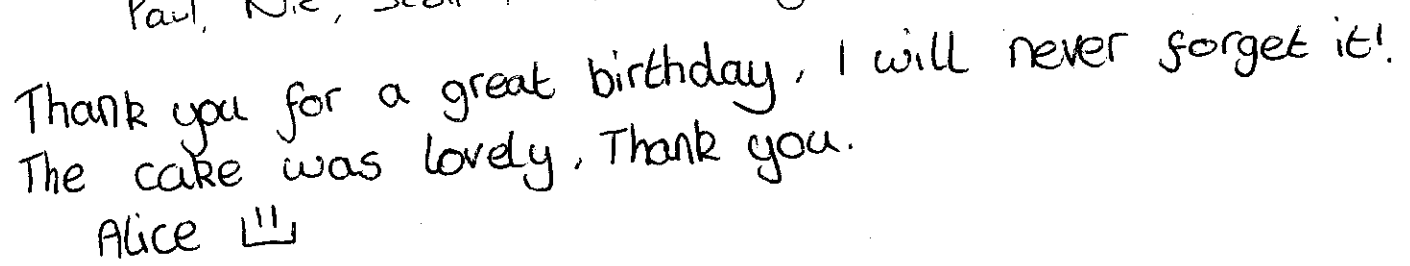 Paul,
Thank you for a great birthday, I will never forget it!
The cake was lovely, Thank you.
Alice